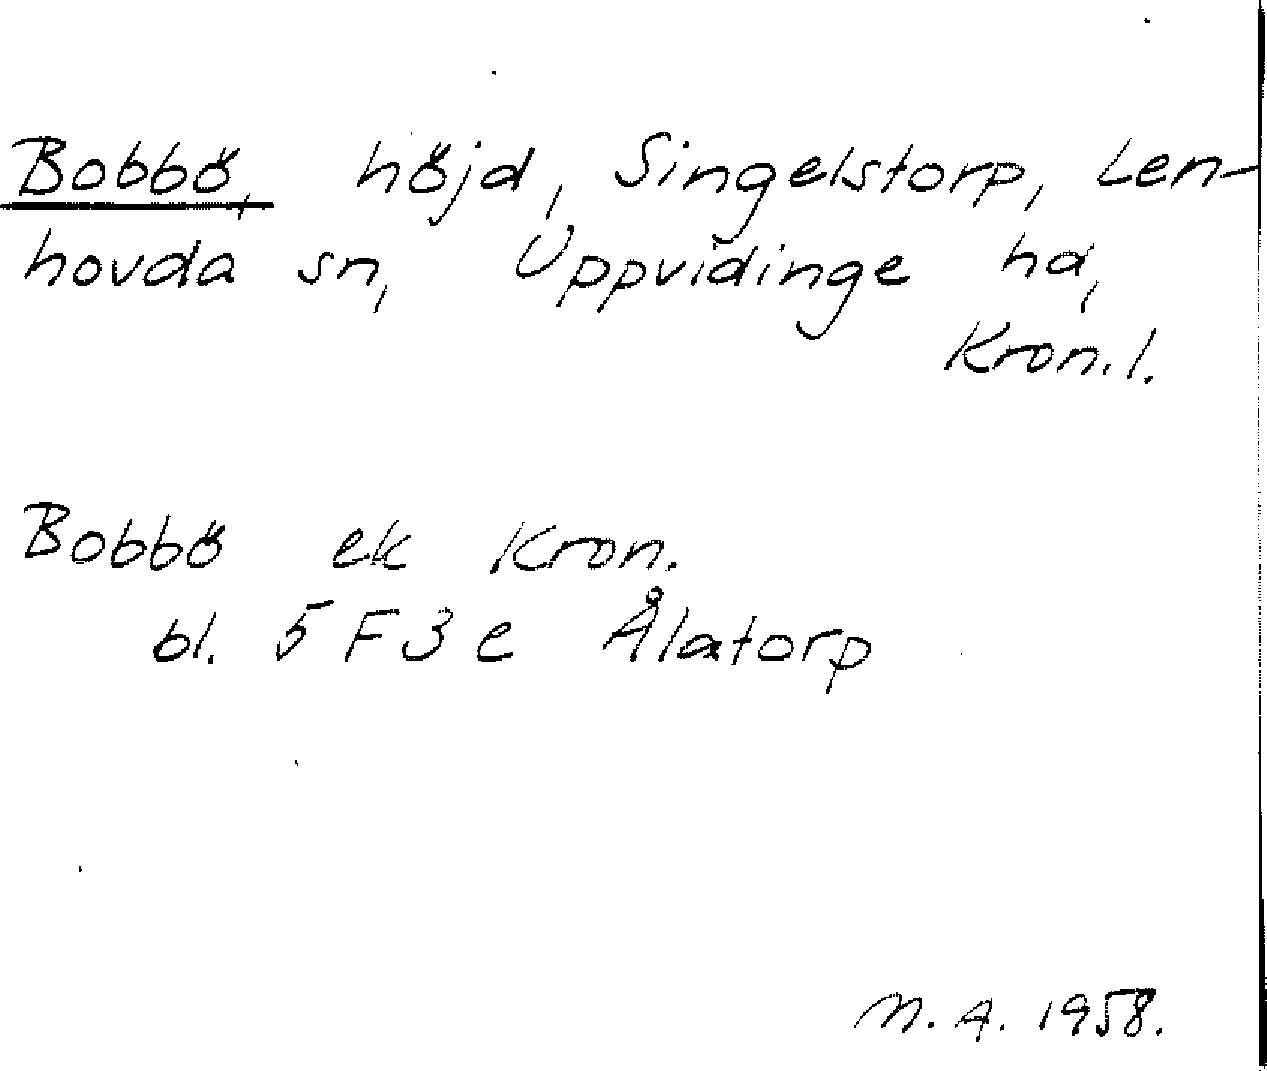 Bobbö, höjd, Singelstorp, Len-
hovda sn, Uppvidinge hd,
Kron. l.
Bobbö ek Kron.
bl. 5 F 3 e Ålatorp
M. A. 1958.